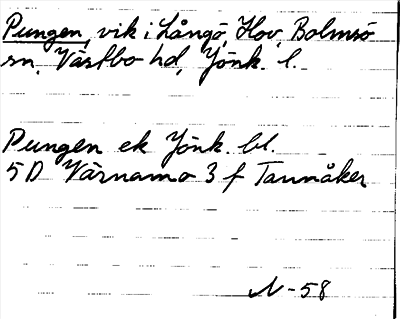 Pungen, vik i Långö, Hov, Bolmsö
sn, Västbo hd, Jönk. l.
Pungen ek Jönk. bl.
5D Värnamo 3 f Tannåker
N-58